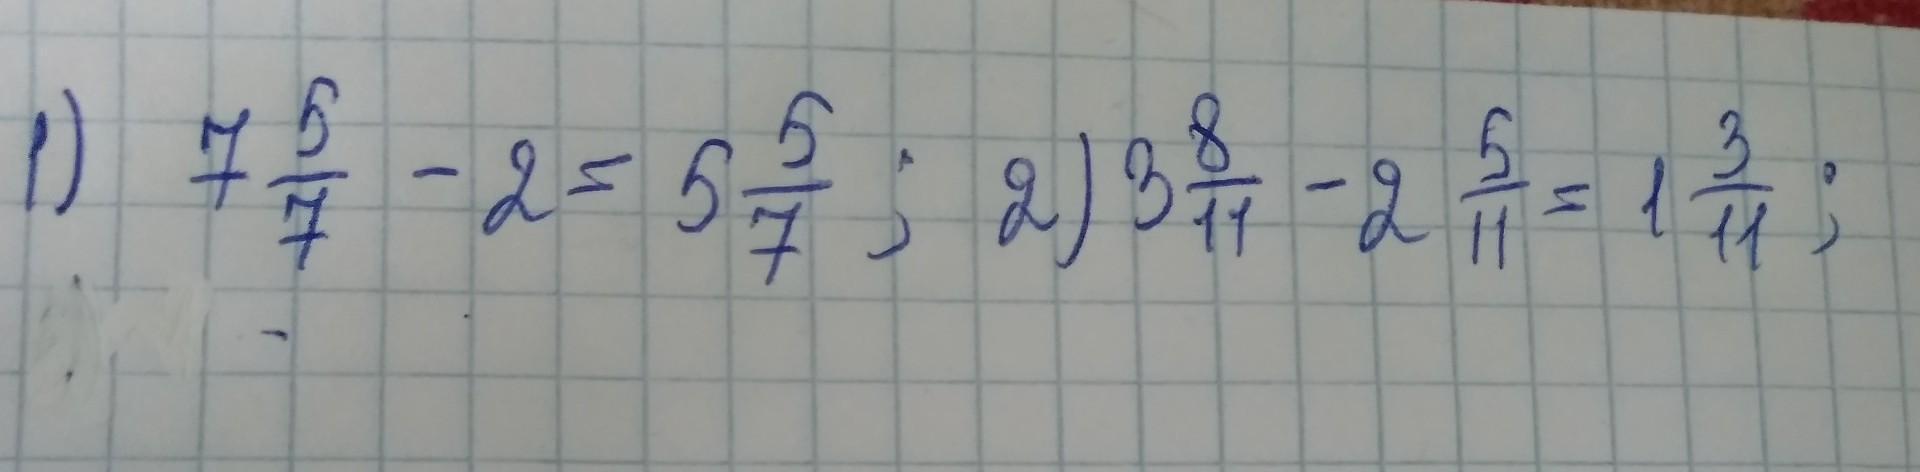 1) 7 5/7 - 2 = 5 5/7 ; 2) 3 8/11 - 2 5/11 = 1 3/11 ;
-